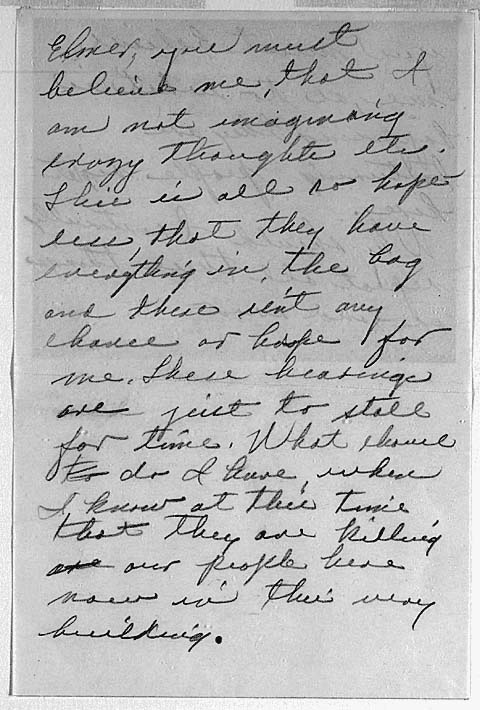 Elmer, you must
believe me, that I
am not imagining
crazy thoughts etc.
This is all so hope-
less, that they have
everything in, the bag
and there isn't any
chance or hope for
me. These hearings
are just to stall
for time. What chance
to do I have, when
I know at this time
that they are killing
are our people here
now in this very
building.